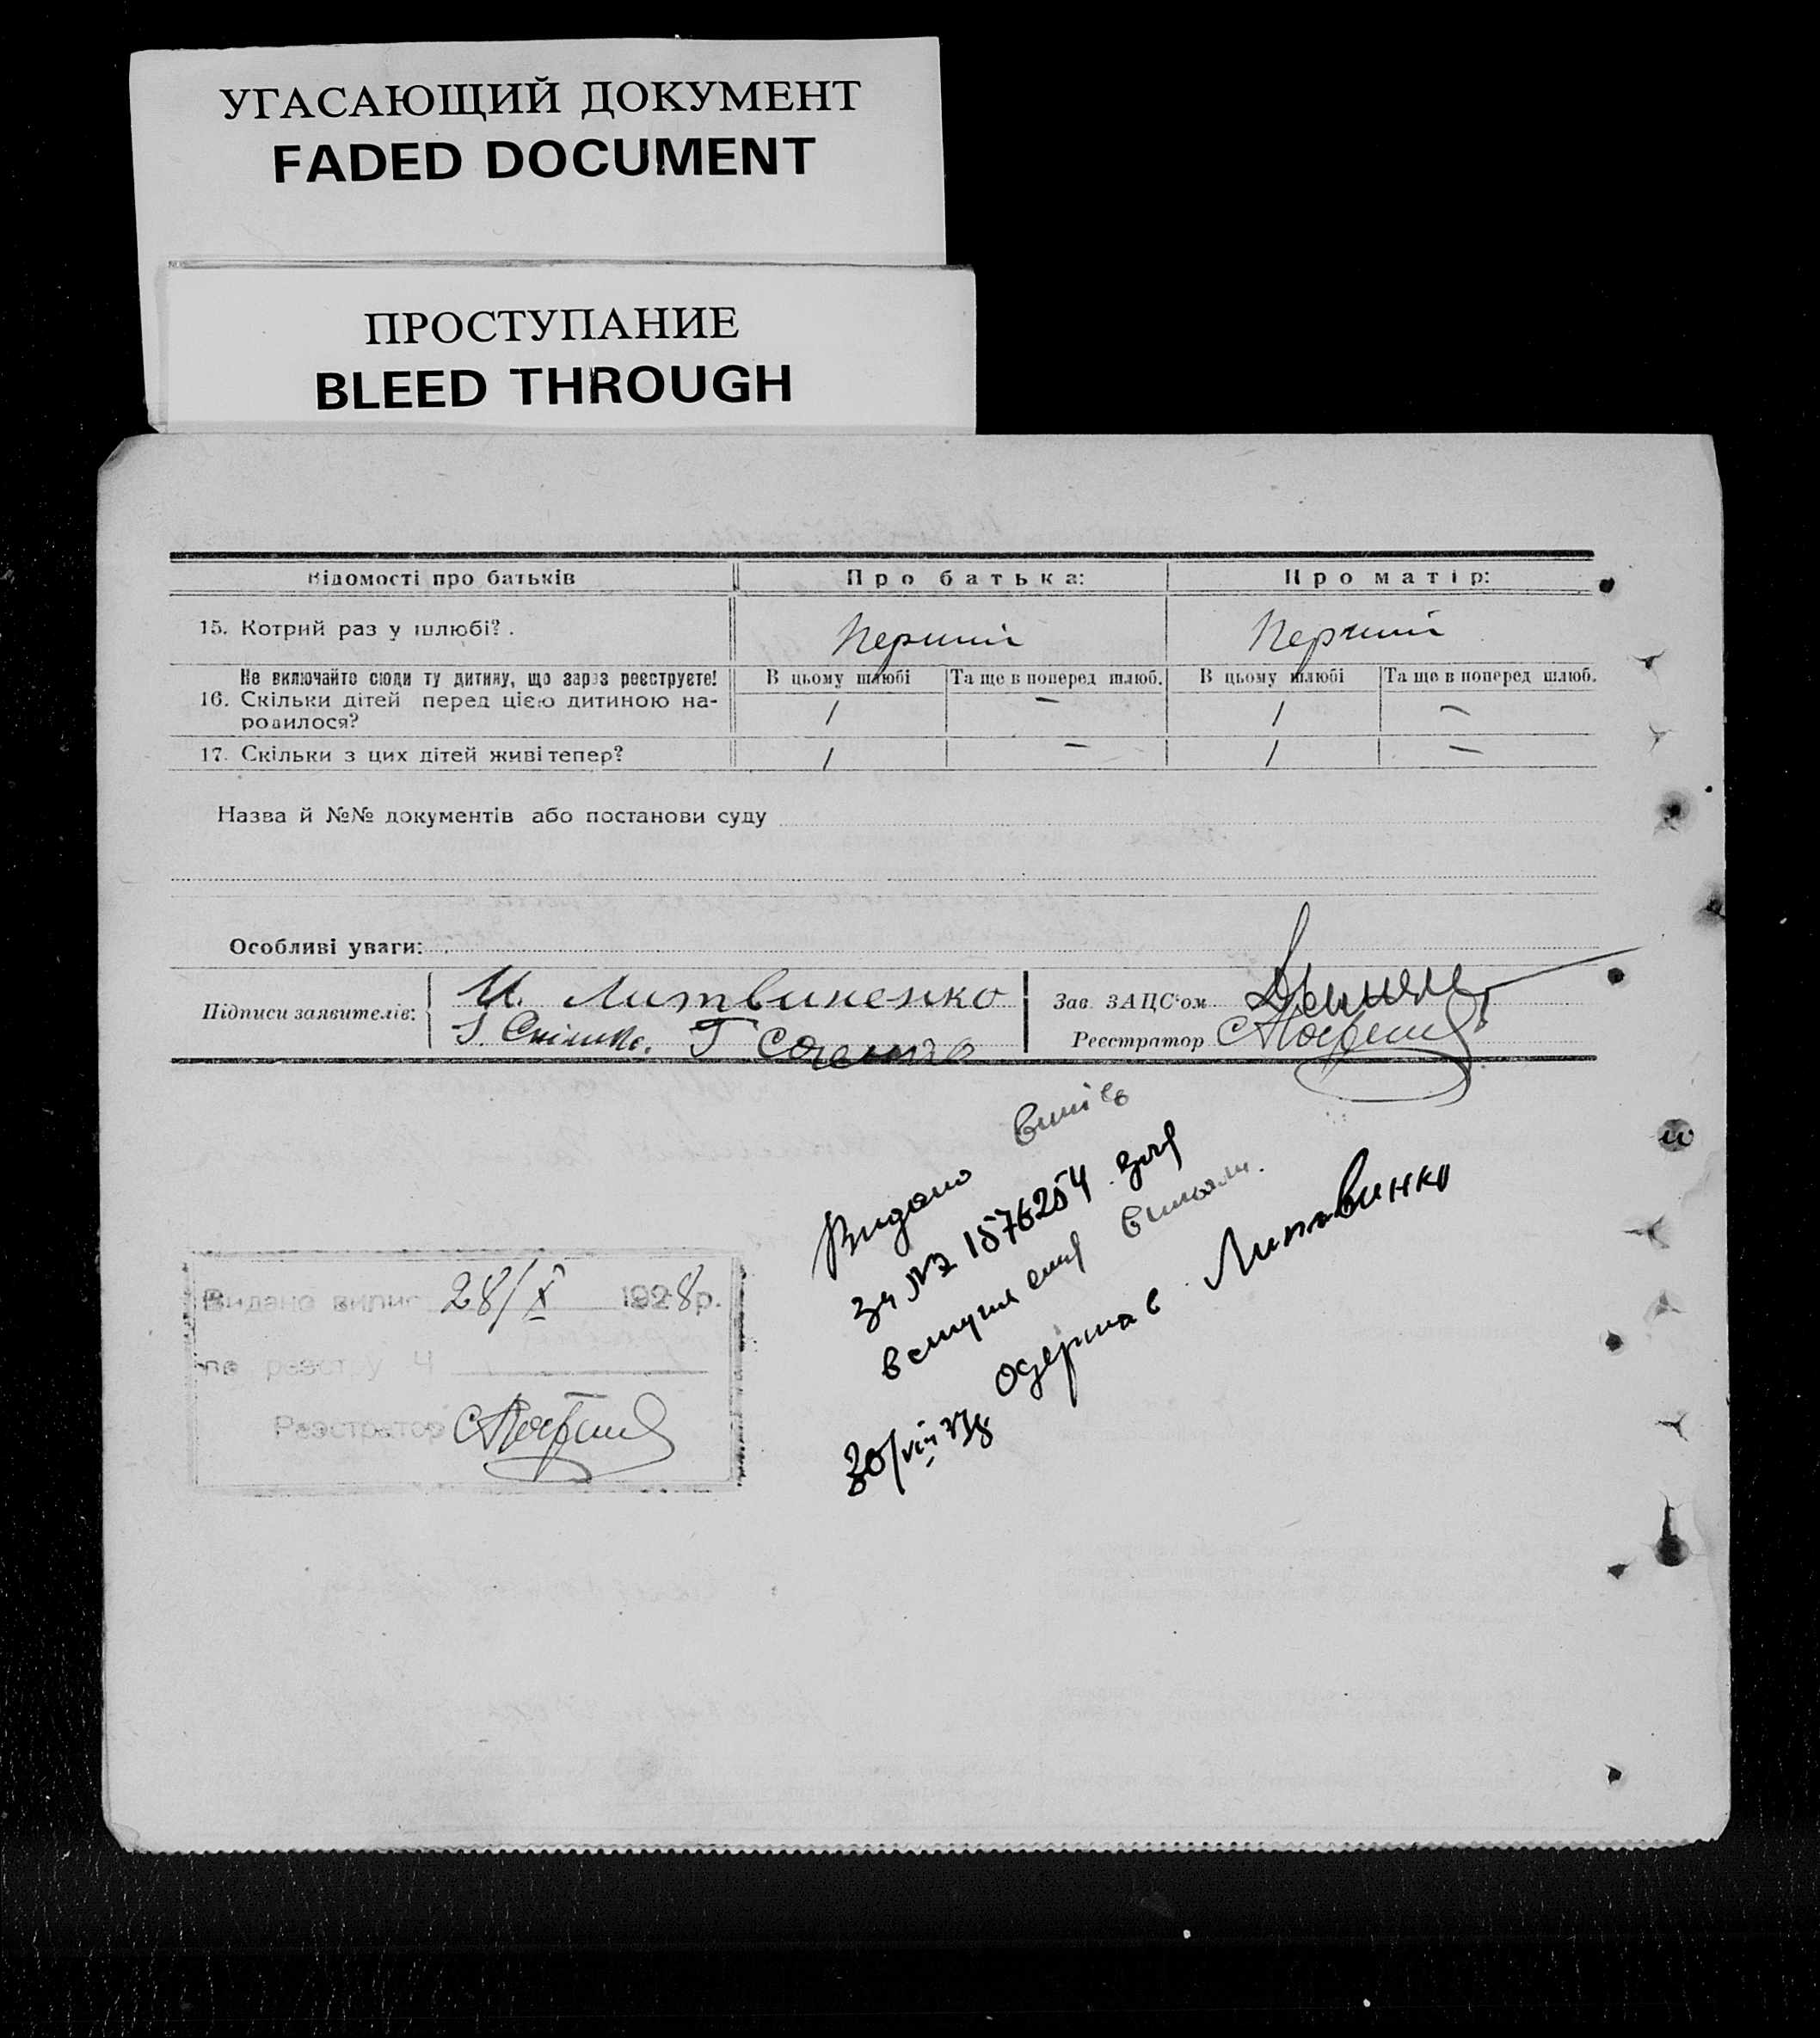 УГАСАЮЩИЙ ДОКУМЕНТ
FADED DOCUMENT
ПРОСТУПАНИЕ
BLEED THROUGH
Відомості про батьків Про батька: Про матір:
15. Котрий раз у шлюбі? . Перший Перший
Не включайте сюди ту дитину, що зараз реєструєте! В цьому шлюбі Та ще в поперед шлюб. В цьому шлюбі Та ще в поперед шлюб.
16. Скільки дітей перед цією дитиною на-
родилося? 1 — 1 —
17. Скільки з цих дітей живі тепер? 1 — 1 —
Назва й №№ документів або постанови суду
Особливі уваги:
Підписи заявителів: И. Литвиненко Зав. ЗАЦС'ом
Реєстратор
Видано
за № 1576254
одержав Литвинко
30/VIII 38
Видано випис 28/X 1928р.
по реєстру Ч
Реєстратор